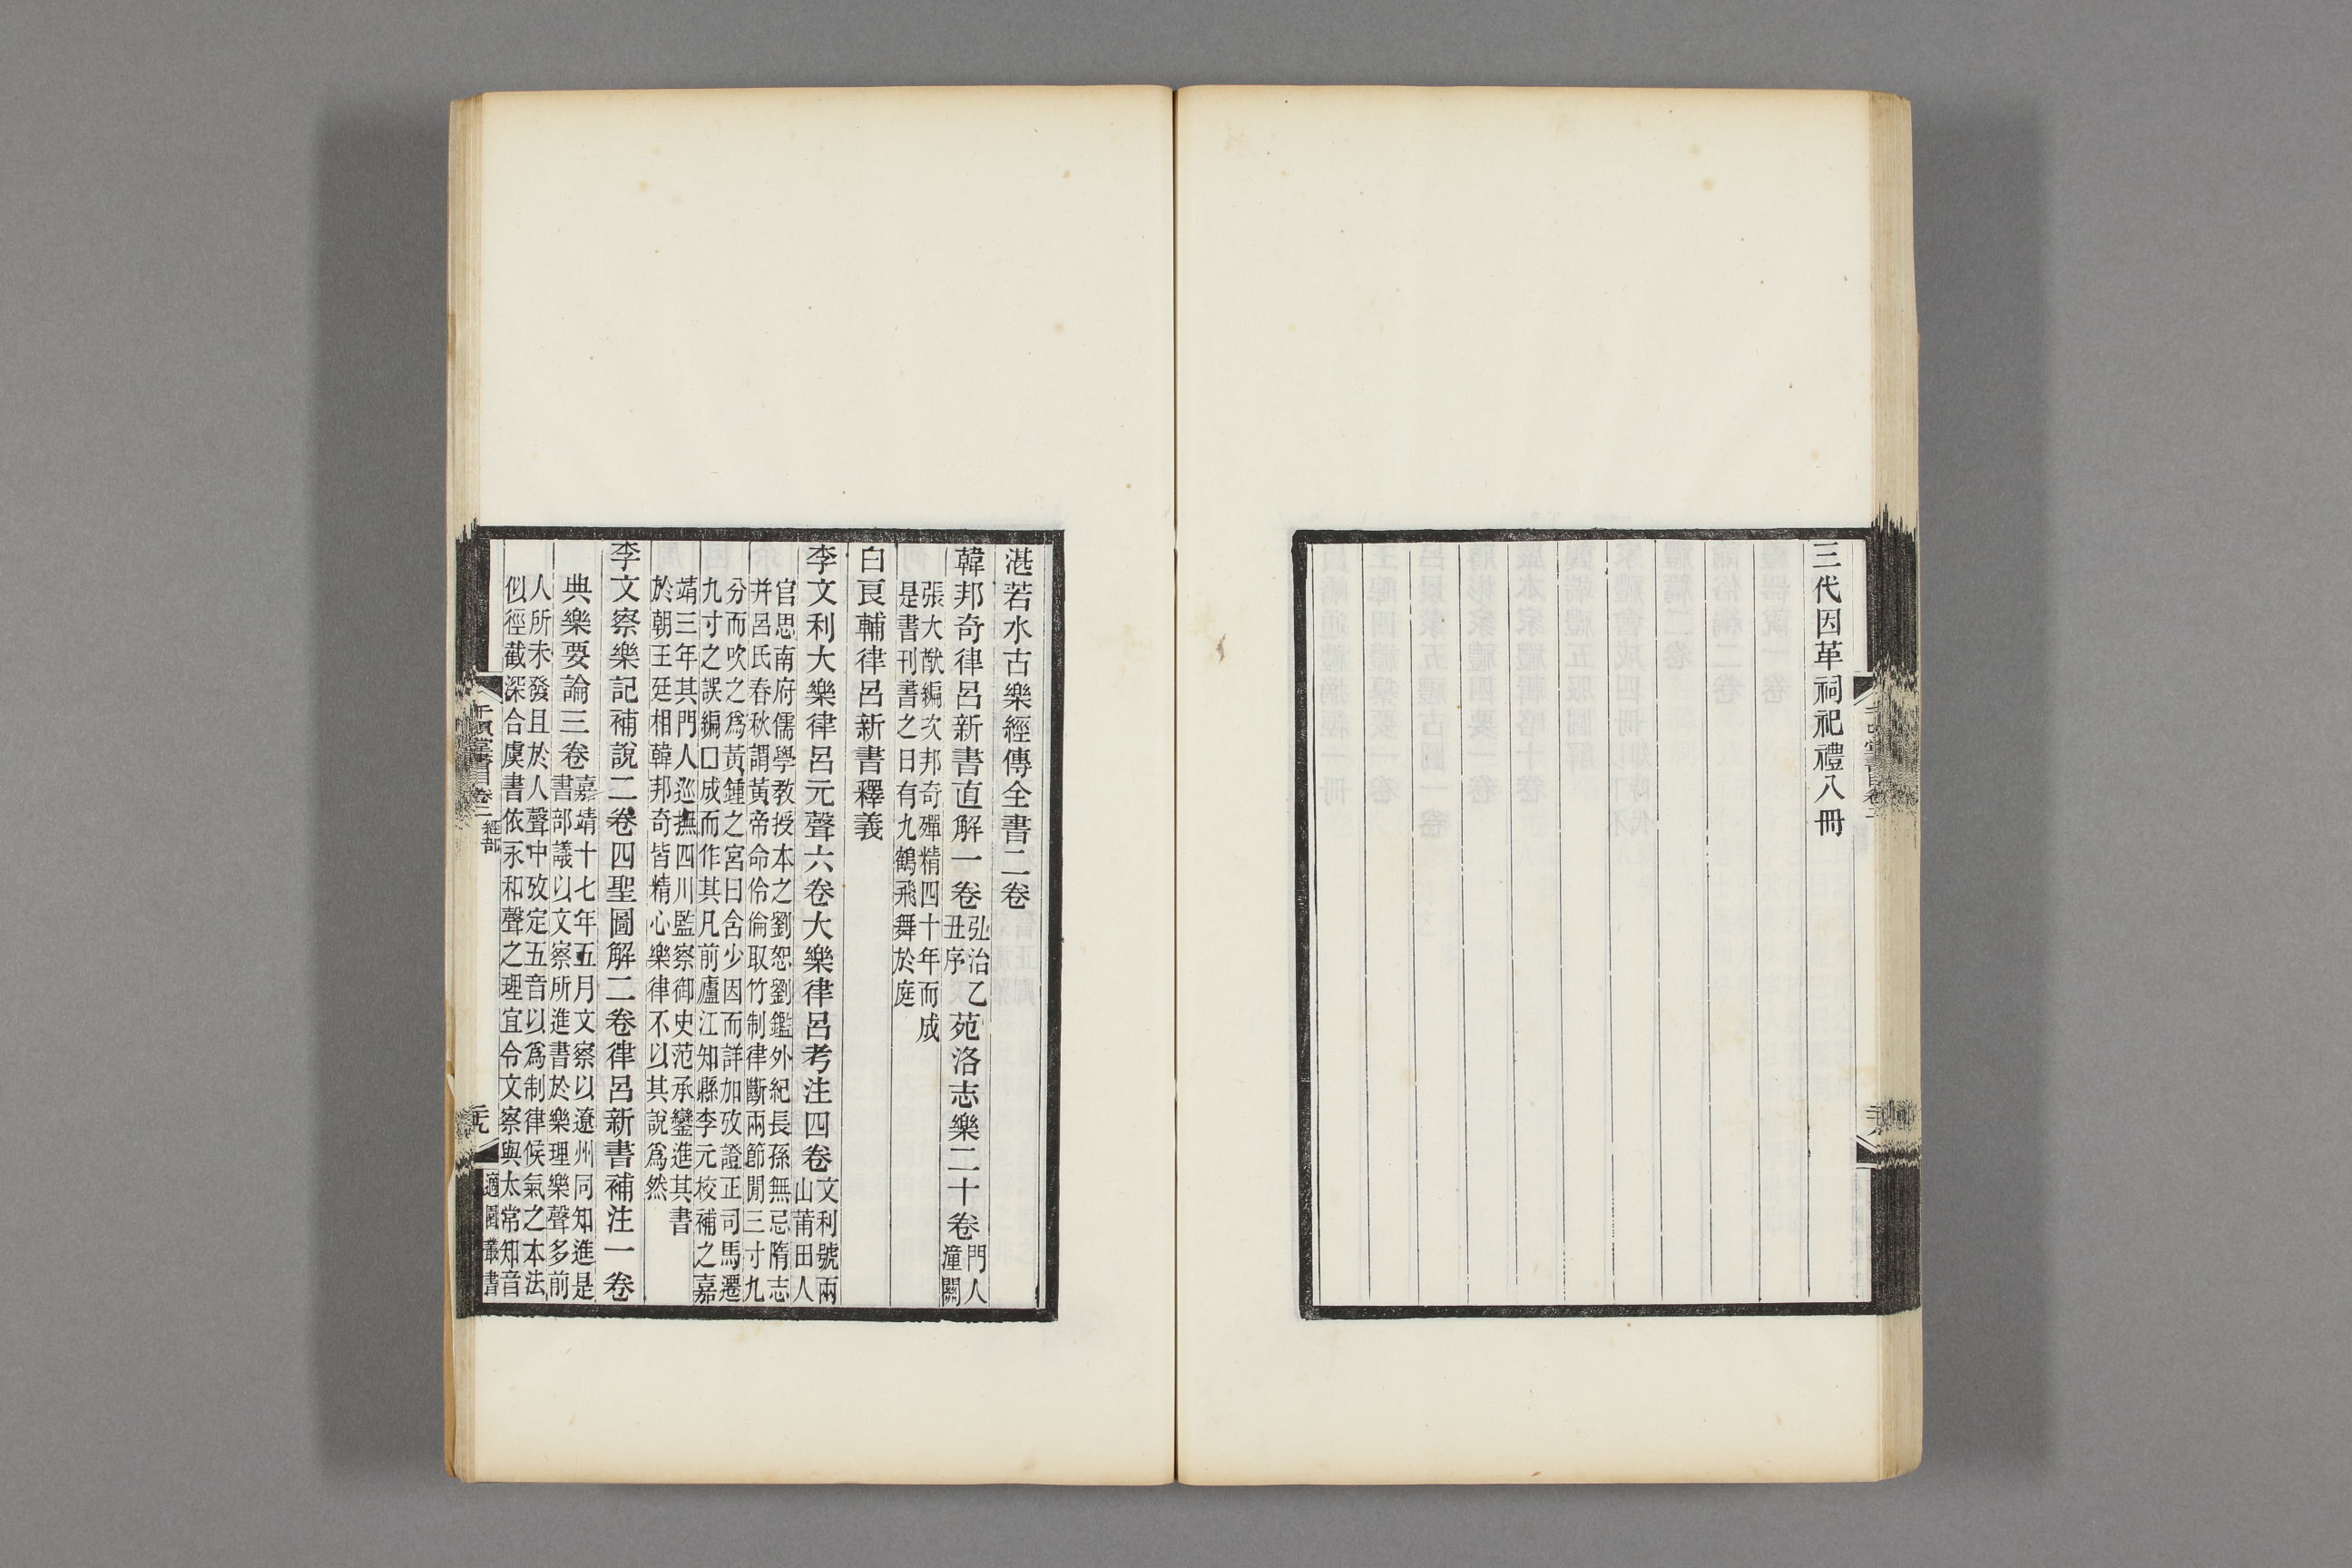 三代因革祠祀禮八冊
湛若水古樂經傳全書二卷
韓邦奇律呂新書直解一卷弘治乙丑序苑洛志樂二十卷門人潼關
張大猷編次邦奇殫精四十年而成
是書刊書之日有九鶴飛舞於庭
白良輔律呂新書釋義
李文利大樂律呂元聲六卷大樂律呂考注四卷文利號兩山莆田人
官思南府儒學教授本之劉恕劉鑑外紀長孫無忌隋志
并呂氏春秋謂黃帝命伶倫取竹制律斷兩節閒三寸九
分而吹之爲黃鍾之宮曰含少因而詳加攷證正司馬遷
九寸之誤編口成而作其凡前廬江知縣李元校補之嘉
靖三年其門人巡撫四川監察御史范承鑾進其書
於朝王廷相韓邦奇皆精心樂律不以其說爲然
李文察樂記補說二卷四聖圖解二卷律呂新書補注一卷
典樂要論三卷嘉靖十七年五月文察以遼州同知進是
書部議以文察所進書於樂理樂聲多前
人所未發且於人聲中攷定五音以爲制律候氣之本法
似徑截深合虞書依永和聲之理宜令文察與太常知音
千頃堂書目卷二 經部
二十九
適園叢書